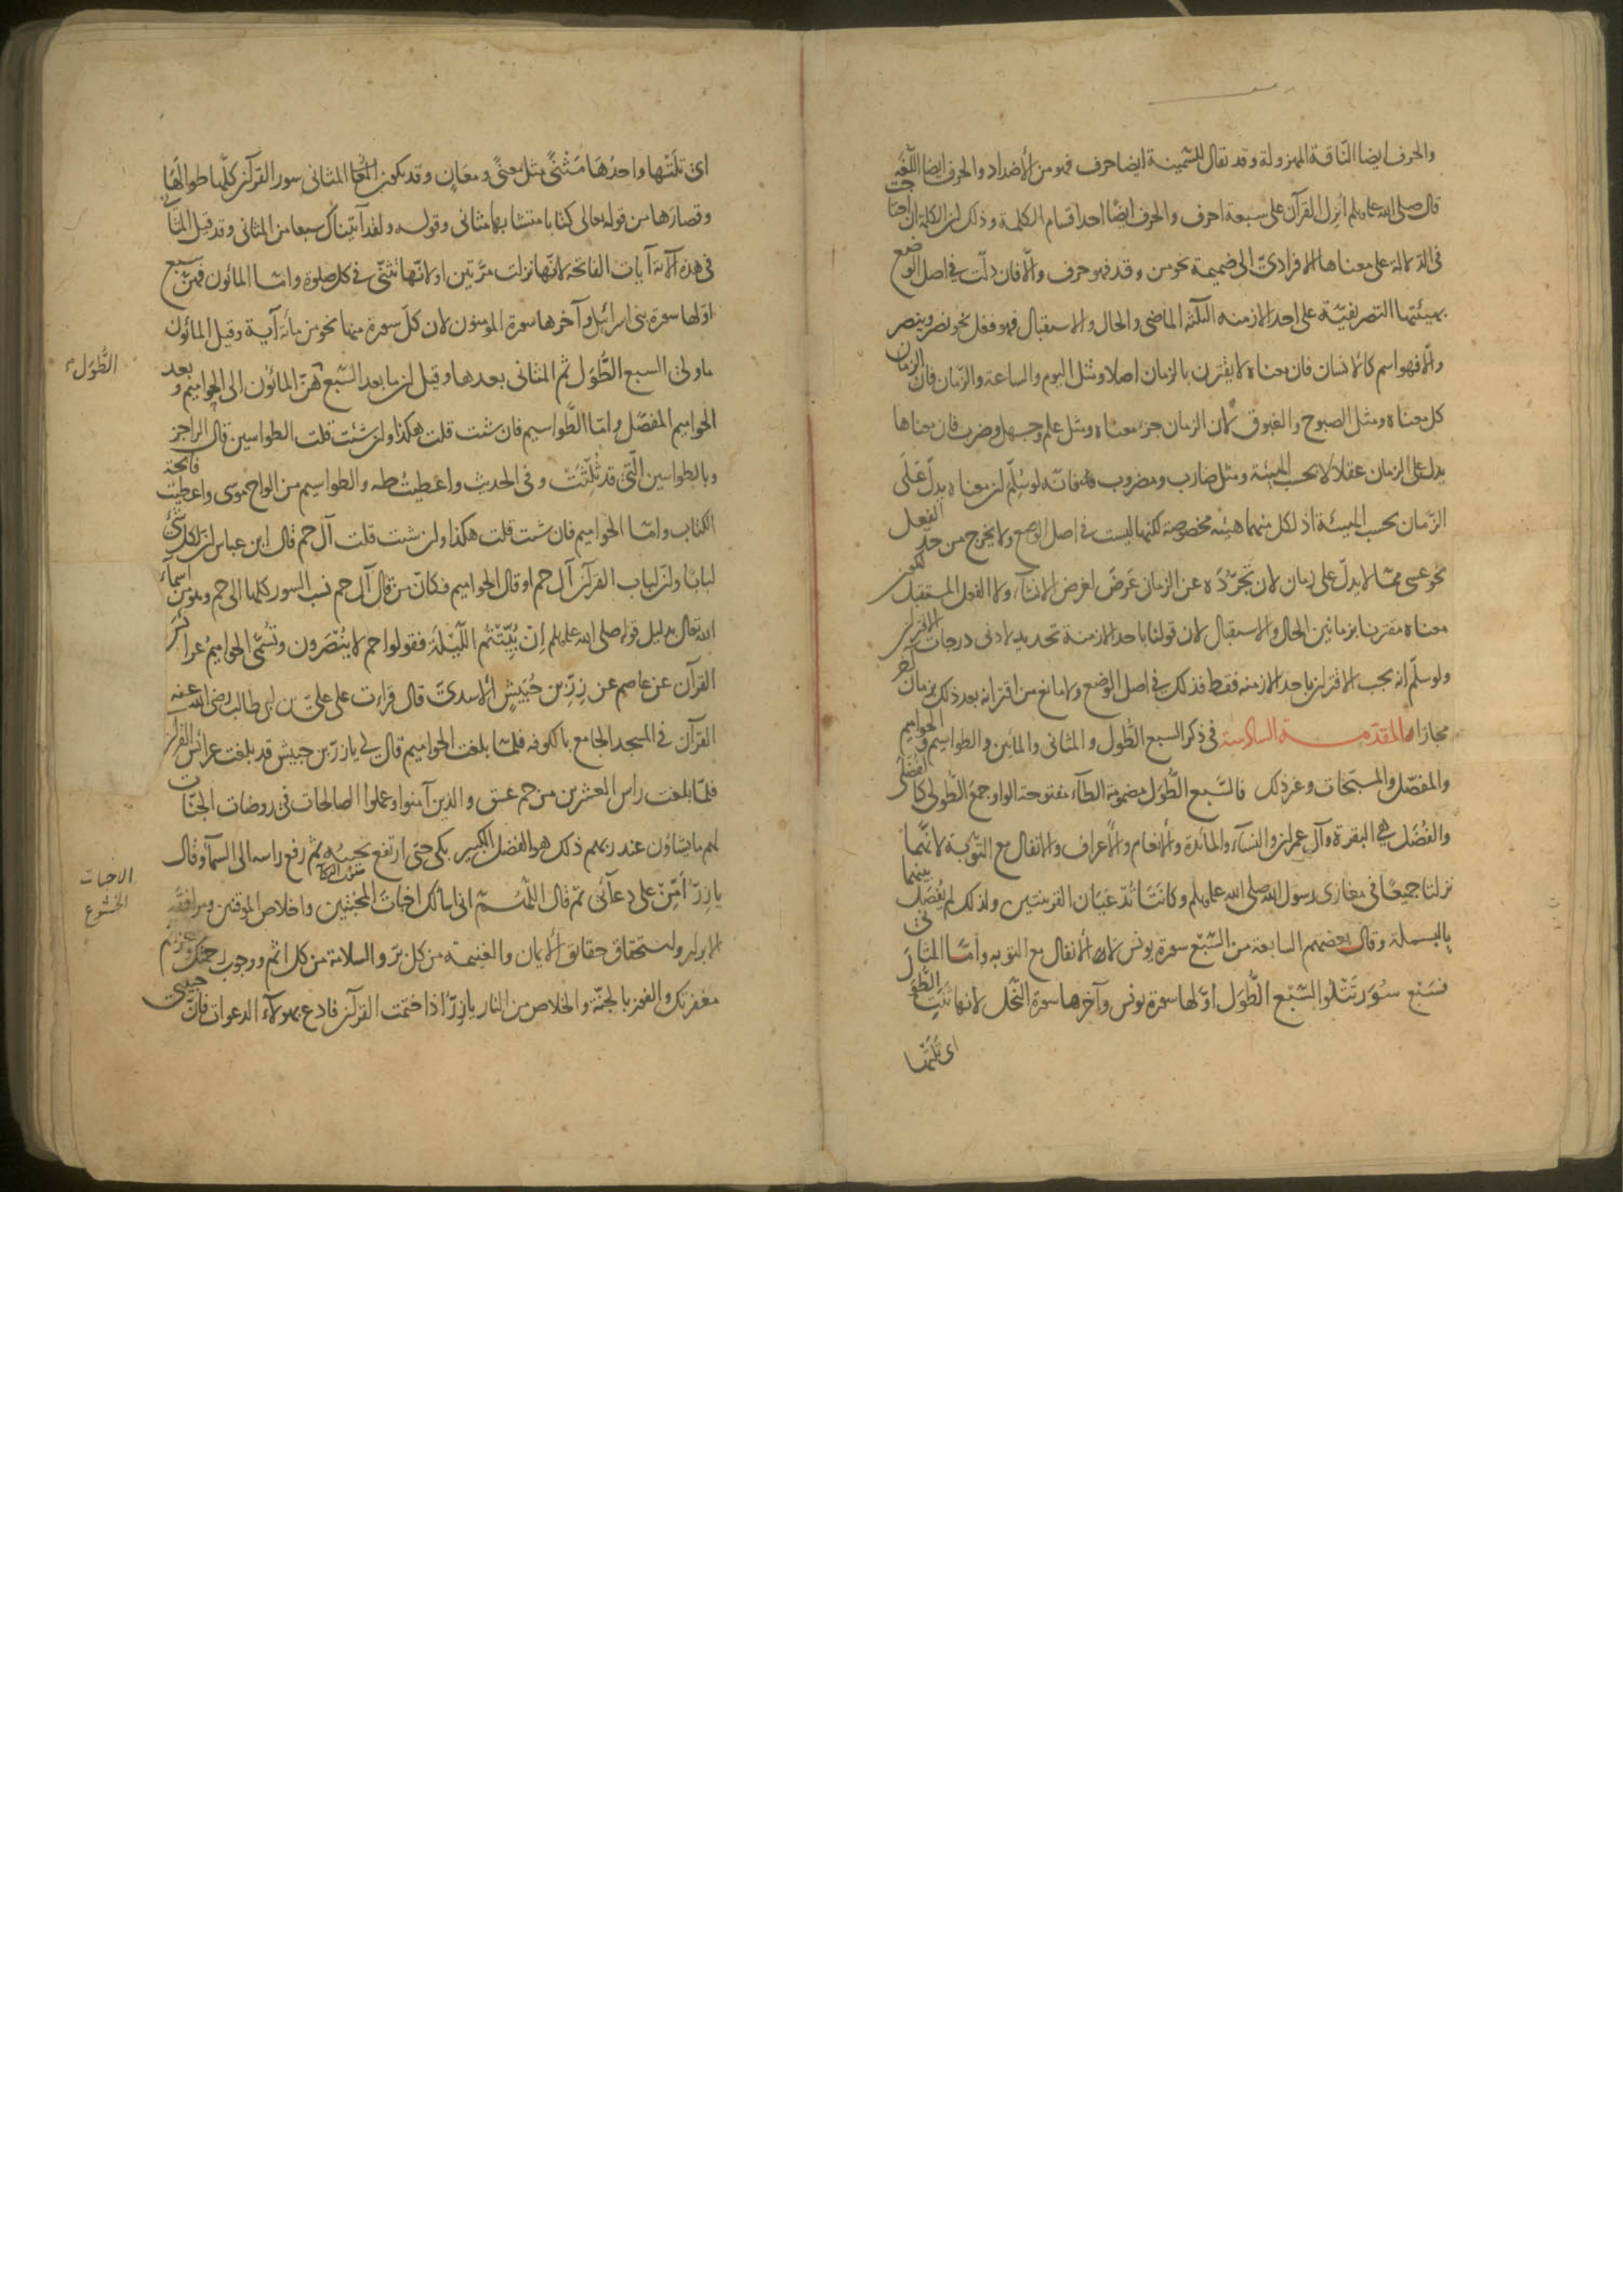 والحرف ايضا النّاقة المهزولة وقد تقال للسّمينة ايضا حرف فهو من الأضداد والحرف ايضا اللّغة
قال صلى الله عليه وسلم أنزل القرآن على سبعة احرف والحرف ايضًا احد اقسام الكلمة وذلك لان الكلمة ان احتاجت
فى الدّلالة على معناها الافرادىّ الى ضميمة نحو من وقد فهو حرف والّا فان دلّت فى اصل الوضع
بهيئتها التصريفيّة على احد الازمنه الثلثه الماضى والحال والاستقبال فهو فعل نحو نصر وينصر
والّا فهو اسم كالانسان فان معناه لا يقترن بالزمان اصلا ومثل اليوم والساعة والزّمان فان الزمان
كل معناه ومثل الصبوح والغبوق لان الزمان جزء معناه ومثل علم وجهل وضرب فان معناها
يدل على الزمان عقلا لا بحسب الهيئة ومثل ضارب ومضروب فانه لو سُلّم ان معناه يدلّ على
الزّمان بحسب الهيئة اذ لكل منهما هيئة مخصوصة لكنها ليست فى اصل الوضع ولا يخرج من حدّ الفعل
نحو عسى ممّا لا يدلّ على زمان لان تجرّده عن الزمان عَرَضَ لغرض الانشاء ولا الفعل المستقبل لكون
معناه مقترنا بزمانين الحال والاستقبال لان قولنا باحد الازمنة تحديد لادنى درجات الاقتران
ولو سلّم انه يجب الاقتران باحد الازمنه فقط فذلك فى اصل الوضع ولا مانع من اقترانه بعد ذلك بزمان آخر
مجازا المقدّمة السادسة فى ذكر السبع الطُّول والمثانى والمائين والطواسيم والحواميم
والمفصّل والمسبّحات وغير ذلك فالسّبع الطُّوَل مضمومة الطآء مفتوحة الواو جمع الطُّولى كالفُضلى
والفُضَل هى البقرة وآل عمران والنسآء والمائدة والأنعام والأعراف والانفال مع التّوبة لانّهما
نزلتا جميعًا فى مغازى رسول الله صلى الله عليه وسلم وكانتا تُدّعَيَان القرينتين ولذلك لم يُفصَل بينهما
بالبسملة وقال بعضهم السابعة من السّبع سورة يونس لا الأنفال مع التوبه وامّا المثانى
فسَبْع سُوَر تَتْلوا السّبْع الطُّوَل اوّلها سورة يونس وآخرها سورة النّحل لانها ثنت الطُّوَل
اى تَلَتْها
اى تَلَتْها واحدُهَا مَثْنًى مثل معنًى ومعَانٍ وقد تكون المثانى سور القرآن كلّها طوالها
وقصارها من قوله تعالى كتابا متشابها مثانى وقوله ولقد آتيناك سبعا من المثانى وقد قيل المثانى
فى هذه الآية آيات الفاتحة لانّها نزلت مرّتين او لانّها تثنّى فى كل صلوة وامّا المائون فهنّ سبع
اوّلها سورة بنى اسرائيل وآخرها سورة المؤمنون لان كلّ سورة منها نحو من مائة آية وقيل المائون
ما ولى السبع الطُّوَل ثم المثانى بعدها وقيل ان ما بعد السّبع هنّ المائون الى الحواميم وبعد
الحواميم المفصّل وامّا الطّواسيم فان شئت قلت هكذا وان شئت قلت الطواسين قال الراجز
وبالطواسين الّتى قد ثُلّثَتْ وفى الحديث واعطيتُ طه والطواسيم من الواح موسى واعطيت فاتحة
الكتاب وامّا الحواميم فان شئت قلت هكذا وان شئت قلت آل حم قال ابن عباس ان لكل شئ
لبابًا وان لباب القرآن آل حم او قال الحواميم فكانّ من قال آل حم نسب السور كلها الى حم وهو من اسمآء
الله تعالى بدليل قوله صلى الله عليه وسلم إن بُيّتّم اللّيلة فقولوا حم لا يُنْصَرون وتُسمّى الحواميمُ عرائس
القرآن عن عاصم عن زِرّ بن حُبَيشٍ الاسدىّ قال قرأت على علىّ بن ابى طالب رضى الله عنه
القرآن فى المسجد الجامع بالكوفه فلمّا بلغت الحواميم قال لى يا زرّ بن حبيش قد بلغت عرائس القرآن
فلمّا بلغت راس العشرين من حم عسق والذين آمنوا وعملوا الصالحات فى روضات الجنّات
لهم ما يشاؤن عند ربهم ذلك هو الفضل الكبير بكى حتى ارتفع نحيبه ثم رفع راسه الى السمآء وقال
يا زِرّ أَمِّنْ على دعآئى ثم قال اللّهُمّ انى اسألك اخبات المخبتين واخلاص الموقنين ومرافقة
الابرار واستحقاق حقائق الأيمان والغنيمة من كل برّ والسلامة من كل اثم ووجوب رحمتك وعزائم
مغفرتك والفوز بالجنّة والخلاص من النار يا زِرّ اذا ختمت القرآن فادع بهولآء الدعوات فانّ حبيبى
الطُّوَل
الاخبات
الخشوع